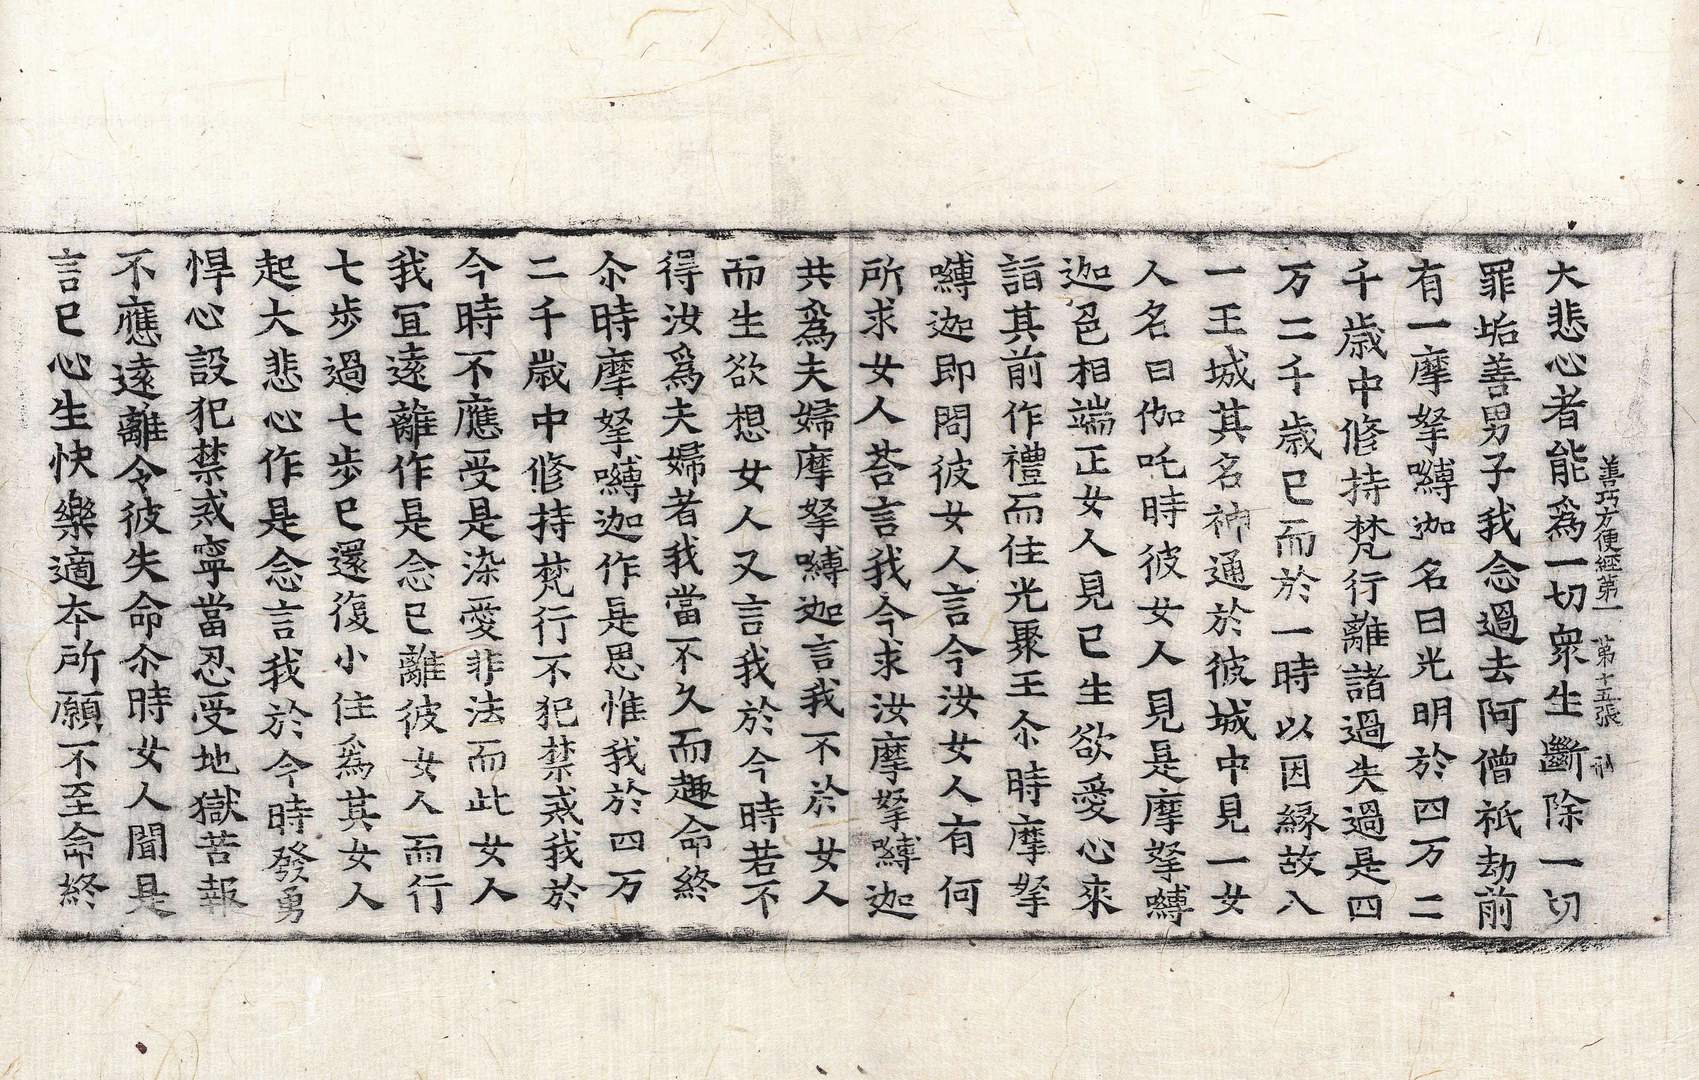 善巧方便經第一 第十五張
大悲心者能爲一切衆生斷除一切
罪垢善男子我念過去阿僧祇劫前
有一摩拏嚩迦名曰光明於四万二
千歲中修持梵行離諸過失過是四
万二千歲已而於一時以因縁故入
一王城其名神通於彼城中見一女
人名曰伽吒時彼女人見是摩拏嚩
迦色相端正女人見已生欲愛心來
詣其前作禮而住光聚王尒時摩拏
嚩迦即問彼女人言今汝女人有何
所求女人荅言我今求汝摩拏嚩迦
共爲夫婦摩拏嚩迦言我不於女人
而生欲想女人又言我於今時若不
得汝爲夫婦者我當不久而趣命終
尒時摩拏嚩迦作是思惟我於四万
二千歲中修持梵行不犯禁戒我於
今時不應受是染愛非法而此女人
我冝遠離作是念已離彼女人而行
七歩過七歩已還復小住爲其女人
起大悲心作是念言我於今時發勇
悍心設犯禁戒寧當忍受地獄苦報
不應遠離令彼失命尒時女人聞是
言已心生快樂適本所願不至命終